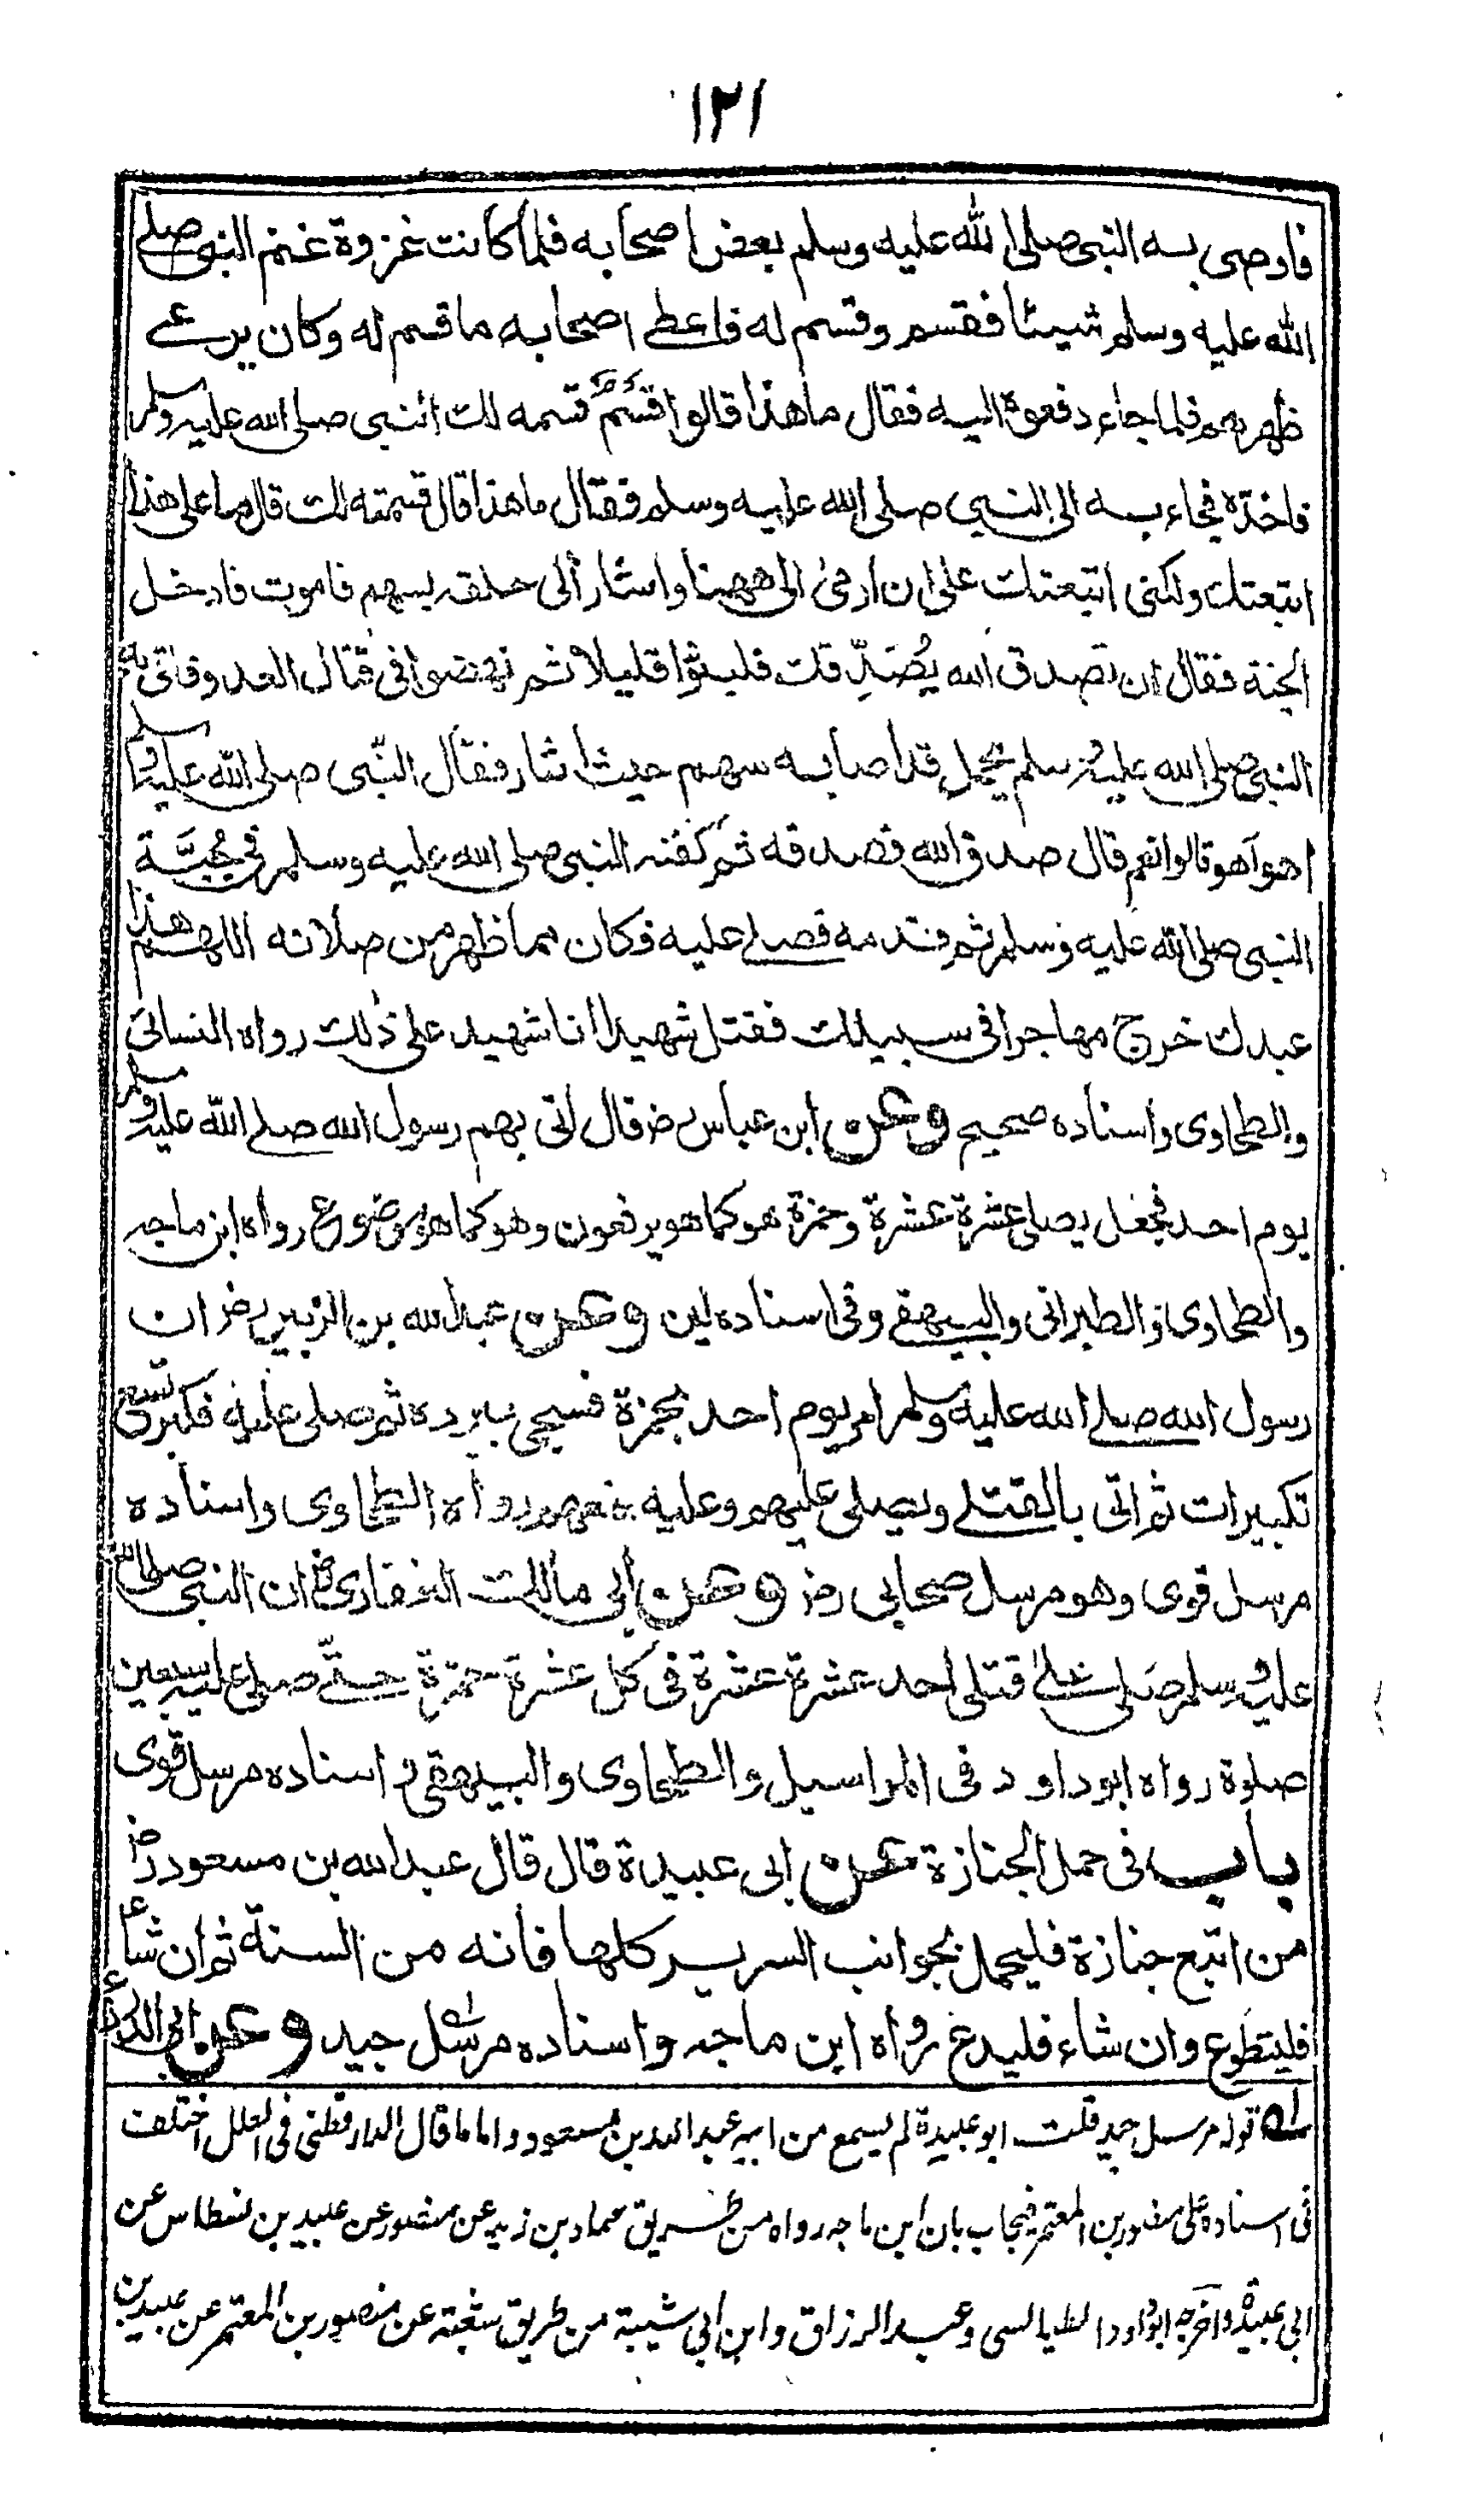 ١٢١
فاوصى به النبى صلى الله عليه وسلم بعض اصحابه فلما كانت غزوة غنم النبى صلے
الله عليه وسلم شيئا فقسم وقسم له فاعطے اصحابه ما قسم له وكان يرعے
ظهرهم فلما جاء دفعوه اليه فقال ما هذا قالوا قسم قسمه لك النبى صلى الله عليه وسلم
فاخذه فجاء به الى النبى صلى الله عليه وسلم فقال ما هذا قال قسمته لك قال ما على هذا
اتبعتك ولكنى اتبعتك على ان ارمى الى ههنا واشار الى حلقه بسهم فاموت فادخل
الجنة فقال ان تصدق الله يُصَدِّقك فلبثوا قليلا ثم نهضوا فى قتال العدو فاتى به
النبى صلى الله عليه وسلم يحمل قد اصابه سهم حيث اشار فقال النبى صلى الله عليه وسلم
اهو اهو قالوا نعم قال صدق الله فصدقه ثم كفنه النبى صلى الله عليه وسلم فى جُبَّة
النبى صلى الله عليه وسلم ثم قدمه فصلے عليه فكان مما ظهر من صلاته اللهم هذا
عبدك خرج مهاجرا فى سبيلك فقتل شهيدا انا شهيد على ذلك رواه النسائى
والطحاوى واسناده صحيح وعن ابن عباس رض قال اتى بهم رسول الله صلے الله عليه وسلم
يوم احد فجعل يصلى عشرة عشرة وحمزة هو كما هو يرفعون وهو كما هو موضوع رواه ابن ماجه
والطحاوى والطبرانى والبيهقے وفى اسناده لين وعن عبد الله بن الزبير رض ان
رسول الله صلے الله عليه وسلم امر يوم احد بحمزة فسجى ببرده ثم صلى عليه فكبر تسع
تكبيرات ثم اتى بالقتلے ويصلى عليهم وعليه معهم رواه الطحاوى واسناده
مرسل قوى وهو مرسل صحابى رض وعن ابى مالك الغفارى رض ان النبى صلى الله
عليه وسلم صلى علے قتلى احد عشرة عشرة فى كل عشرة حمزة حتّے صلى عليه سبعين
صلوة رواه ابو داود فى المراسيل والطحاوى والبيهقى و اسناده مرسل قوى
باب فى حمل الجنازة عن ابى عبيدة قال قال عبد الله بن مسعود رض
من اتبع جنازة فليحمل بجوانب السرير كلها فانه من السنة ثم ان شاء
فليتطوع وان شاء فليدع رواه ابن ماجه واسناده مرسل جيد وعن ابى الدرداء
له قوله مرسل جيد قلت ابو عبيدة لم يسمع من ابيه عبد الله بن مسعود واما ما قال الدارقطنى فى العلل اختلف
فى اسناده على منصور بن المعتمر فيجاب بان ابن ماجه رواه من طريق حماد بن زيد عن منصور عن عبيد بن نسطاس عن
ابى عبيدة واخرجه ابو داود الطيالسى وعبد الرزاق وابن ابى شيبة من طريق شعبة عن منصور بن المعتمر عن عبيد بن